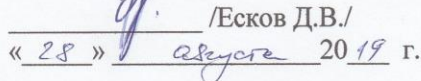 /Есков Д.В./
«28» августа 2019 г.